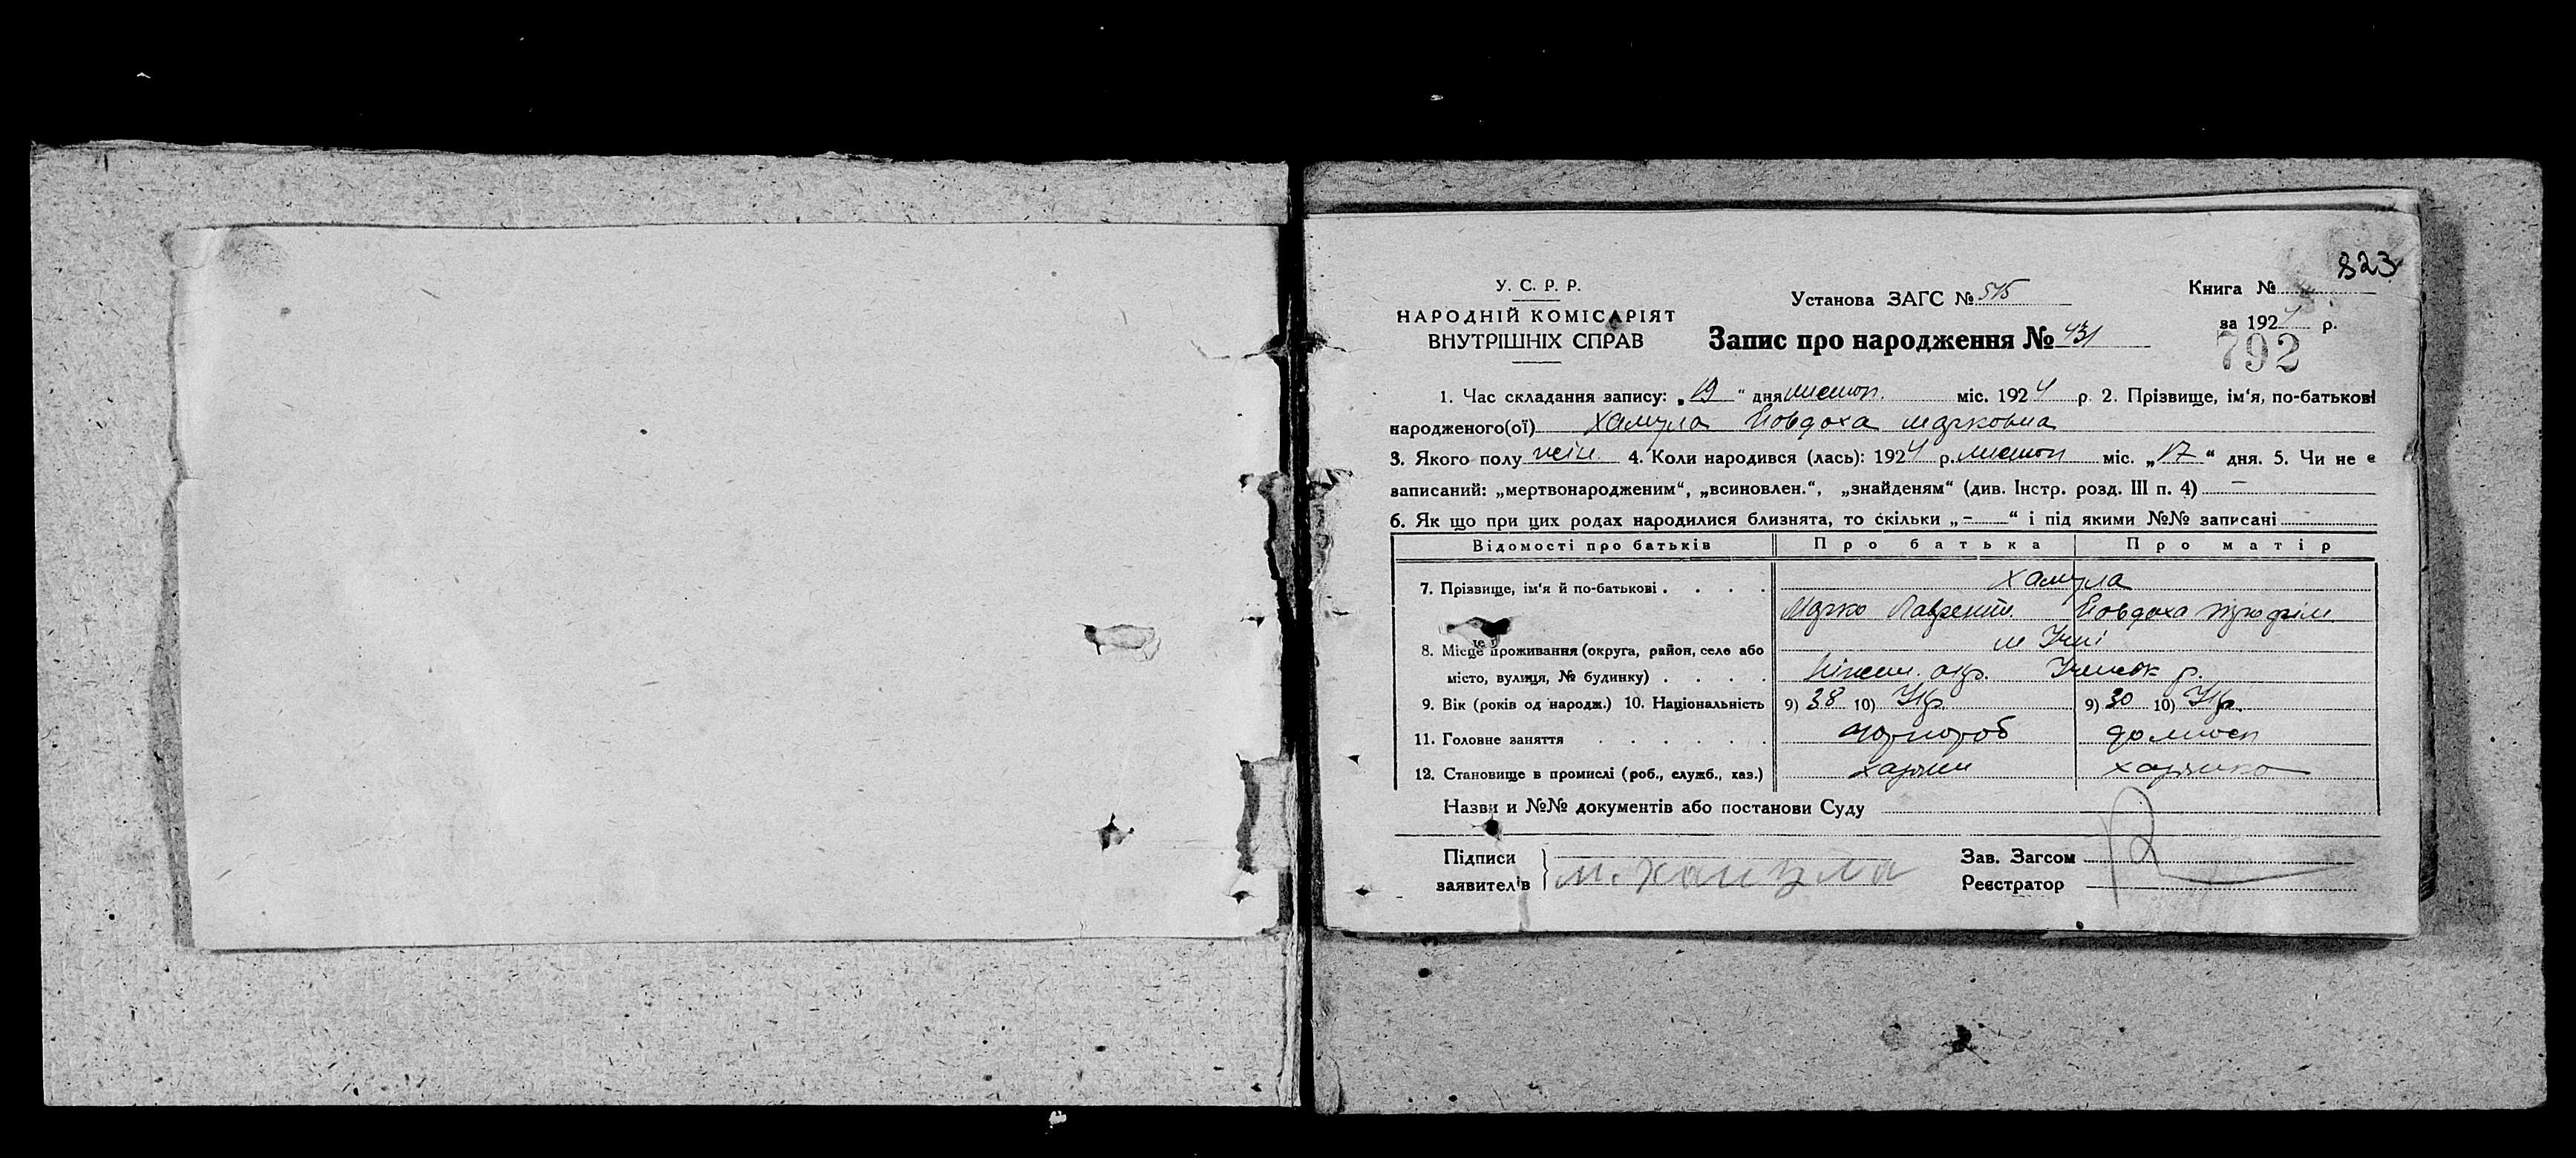 823
У. С. Р. Р.
НАРОДНІЙ КОМІСАРІЯТ
ВНУТРІШНІХ СПРАВ
Установа ЗАГС № 515
Запис про народження № 431
Книга №
за 1924 р.
792
1. Час складання запису: „19“ дня листоп. міс. 1924 р. 2. Прізвище, ім'я, по-батькові
народженого(ої) Хамула Йовдоха Марковна
3. Якого полу жін. 4. Коли народився (лась): 1924 р. листоп міс. „17“ дня. 5. Чи не є
записаний: „мертвонародженим“, „всиновлен.“, „знайденям“ (див. Інстр. розд. III п. 4) –
6. Як що при цих родах народилися близнята, то скільки „–“ і під якими №№ записані
Відомості про батьків Про батька Про матір
7. Прізвище, ім'я й по-батькові . . . . Хамула
Марко Лаврент. Йовдоха
8. Місце проживання (округа, район, село або м Ічні
місто, вулиця, № будинку) . . . . Ніжен. окр. Іченьк р.
9. Вік (років од народж.) 10. Національність 9) 38 10) Укр. 9) 30 10) Укр.
11. Головне заняття . . . . . . хлібороб домгосп
12. Становище в промислі (роб., служб., хаз.) хазяїн хазяйка
Назви и №№ документів або постанови Суду
Підписи
заявителів
м. хамула
Зав. Загсом
Реєстратор